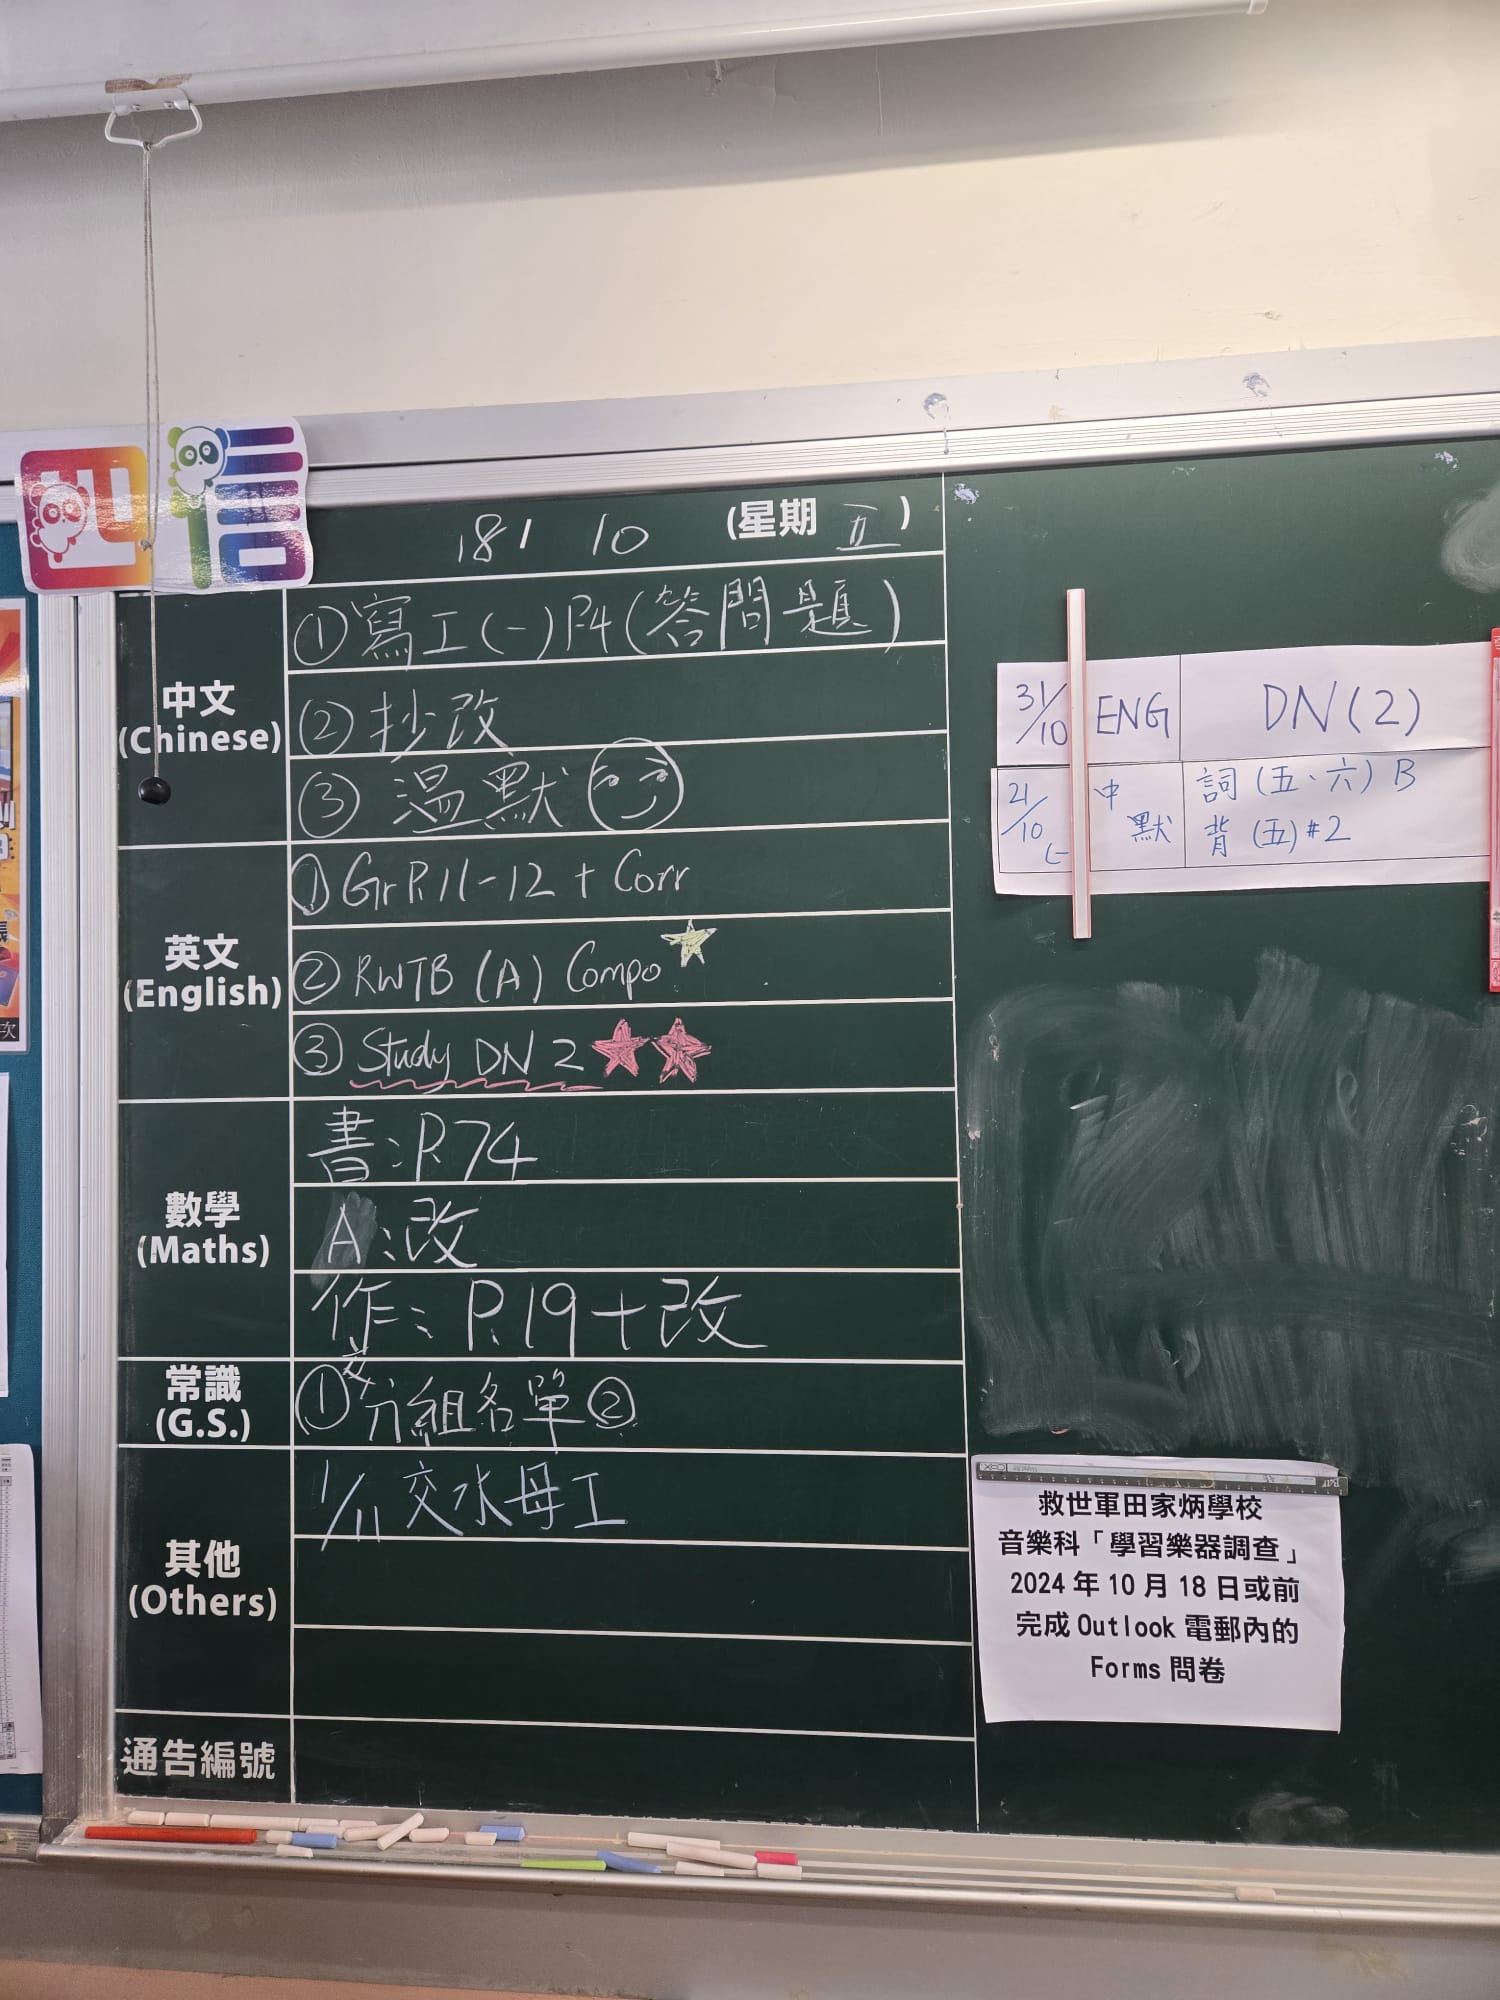 18/ 10 (星期 五 )
中文
(Chinese)
① 寫工(一)P.4(答問題)
② 抄改
③ 溫默
英文
(English)
① Gr P.11-12 + Corr
② RWTB (A) Compo
③ Study DN 2
數學
(Maths)
書:P.74
A:改
作:P.19+改
常識
(G.S.)
① 交分組名單 ②
其他
(Others)
1/11 交水母工
通告編號
31/10 ENG DN(2)
21/10 (一 中默 詞(五、六)B
背(五)#2
救世軍田家炳學校
音樂科「學習樂器調查」
2024年10月18日或前
完成Outlook電郵內的
Forms問卷